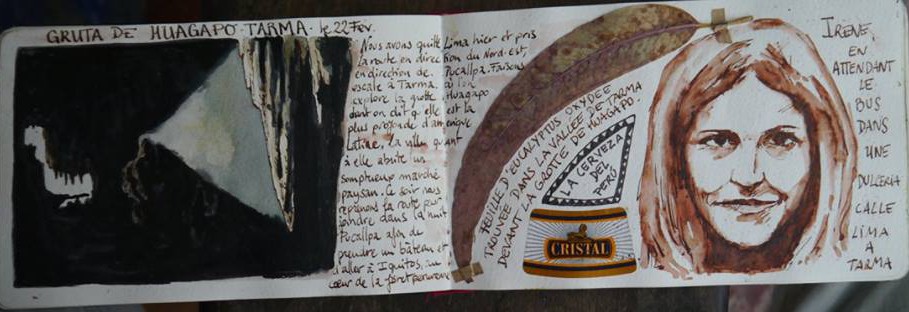 GRUTA DE HUAGAPO-TARMA. le 22 Fév.
Nous avons quitté Lima hier et pris
la route en direction du Nord-est
en direction de Pucallpa. Faisons
escale à Tarma, où l'on
explore la grotte Huagapo
dont on dit qu'elle est la
plus profonde d'amérique
Latine. La ville quant
à elle abrite un
somptueux marché
paysan. Ce soir nous
reprenons la route pour
joindre dans la nuit
Pucallpa afin de
prendre un bâteau et
d'aller à Iquitos, au
cœur de la forêt péruvienne
FEUILLE D'EUCALYPTUS OXYDÉE
TROUVÉE DANS LA VALLÉE DE TARMA
DEVANT LA GROTTE DE HUAGAPO.
LA CERVEZA
DEL
PERÚ
CRISTAL
IRÈNE
EN
ATTENDANT
LE
BUS
DANS
UNE
DULCERIA
CALLE
LIMA
A
TARMA